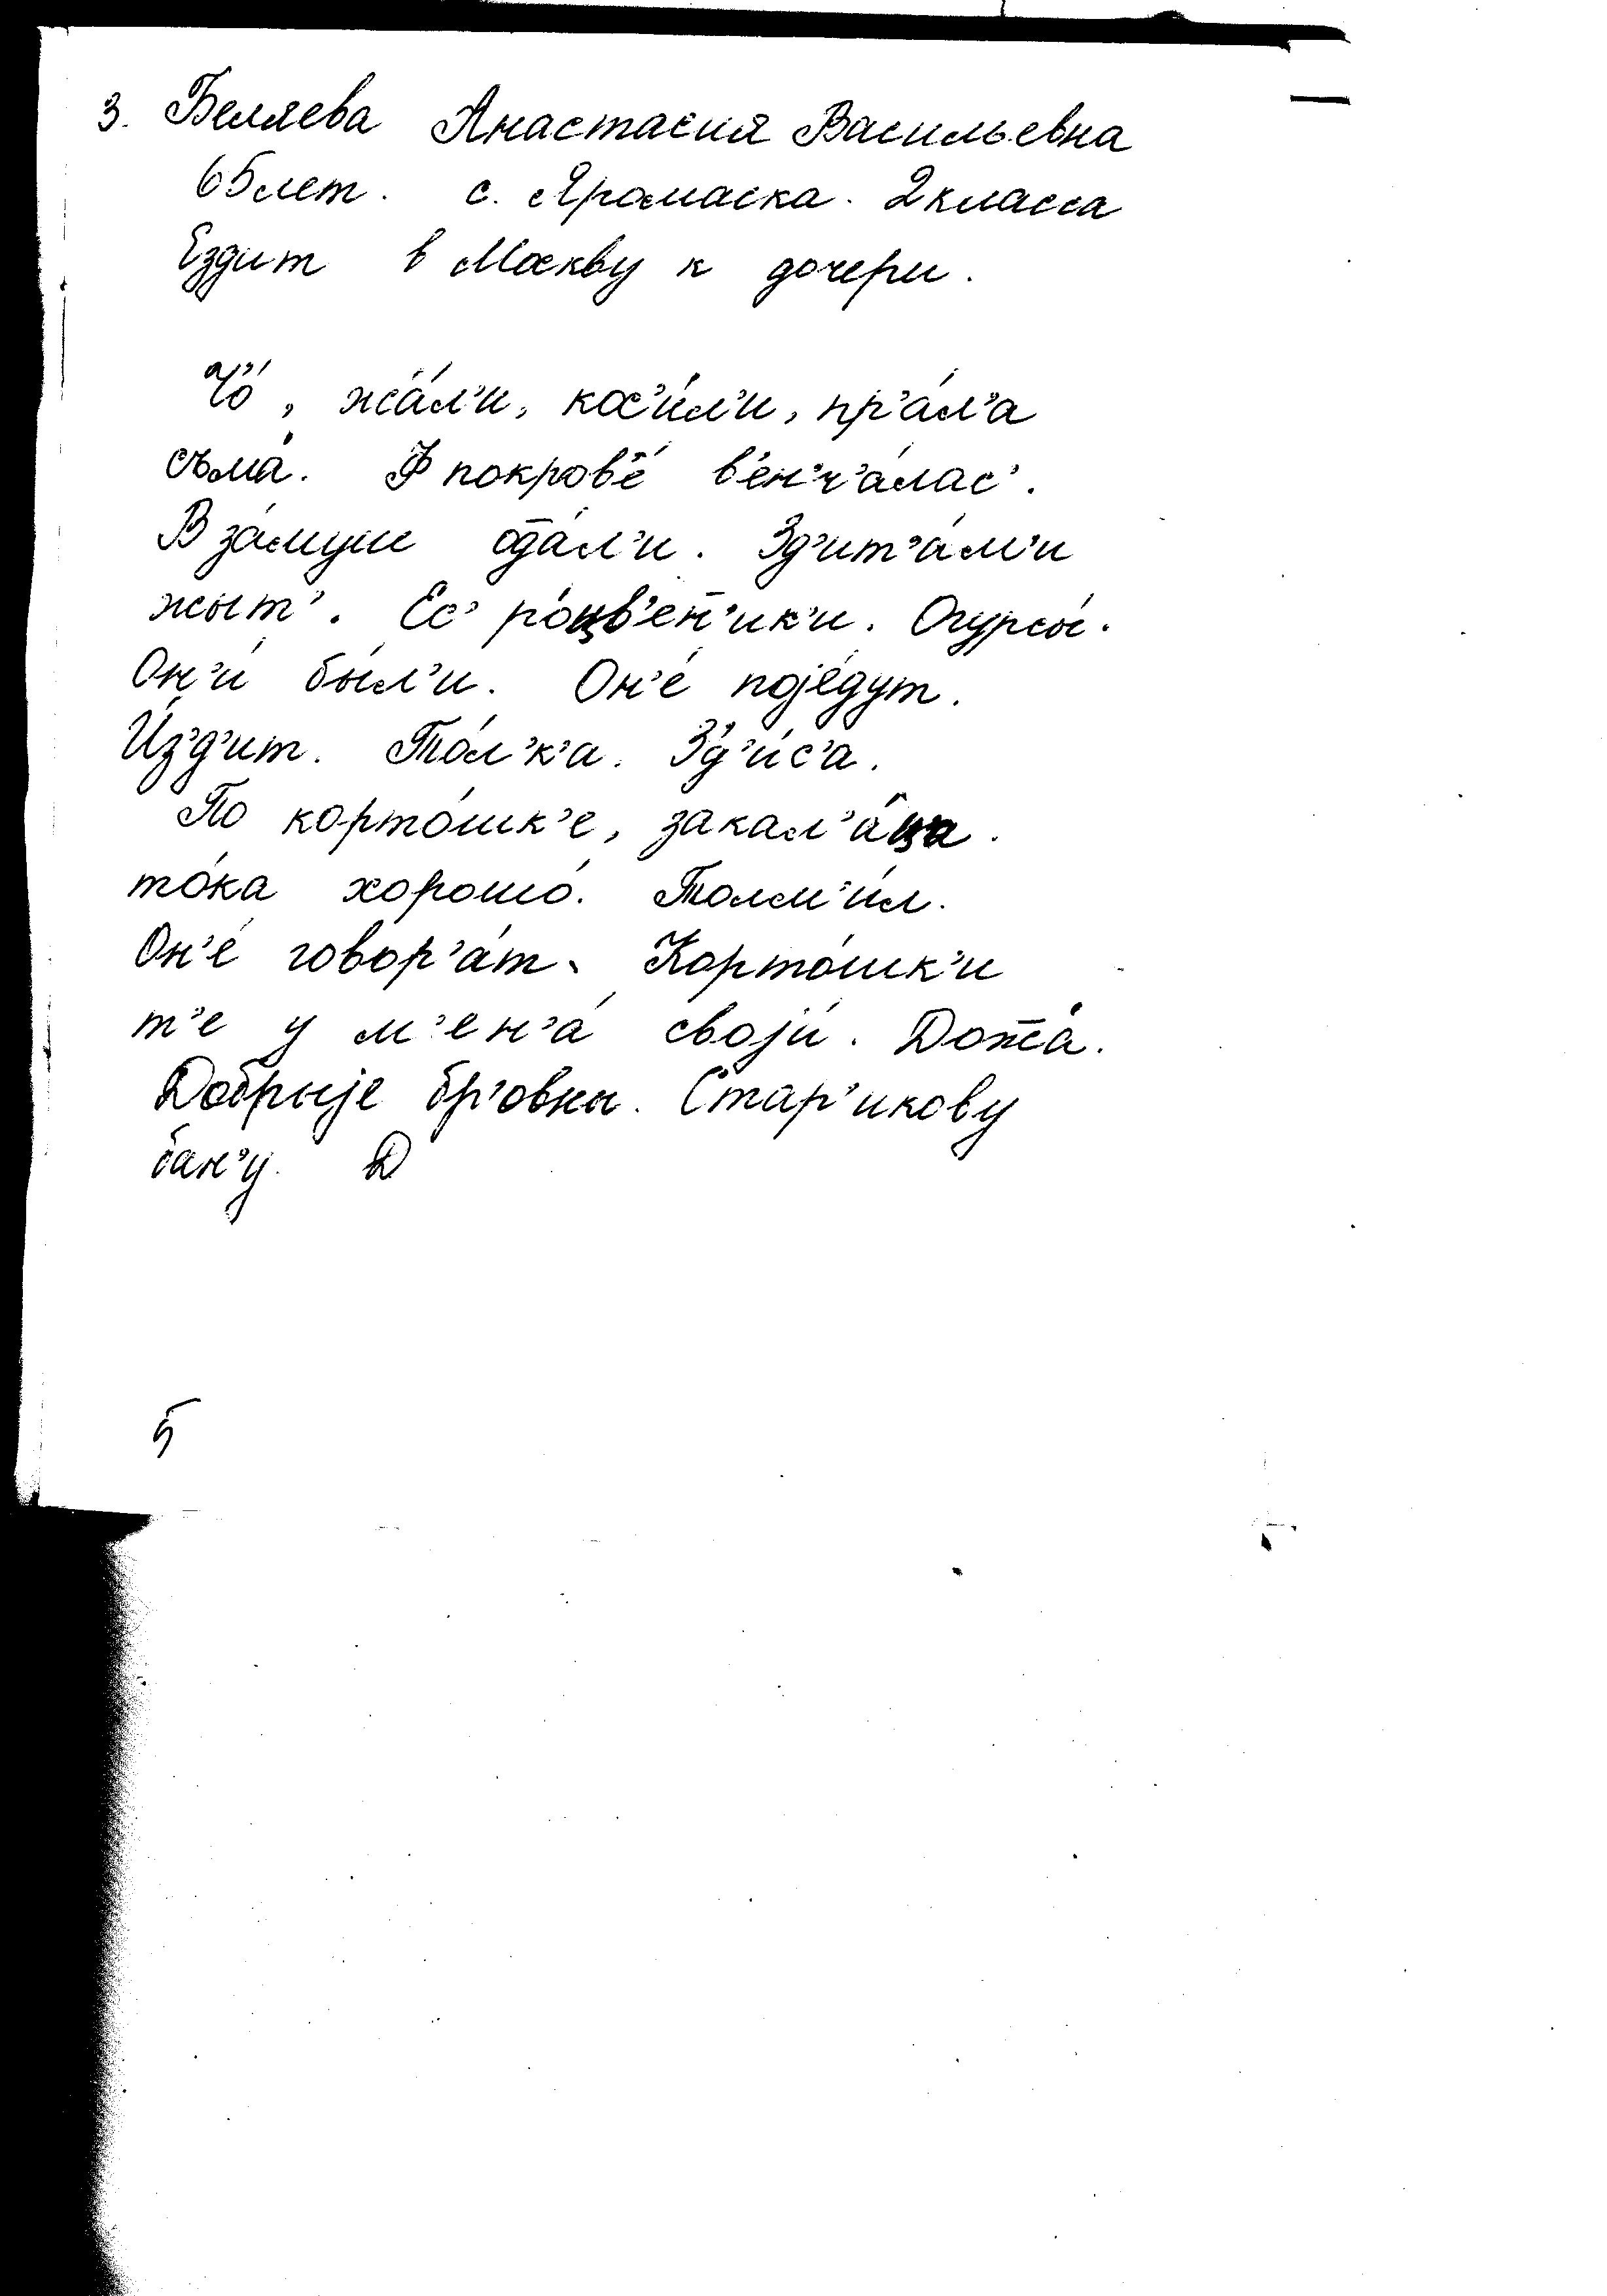 3. Беляева Анастасия Васильевна
65 лет. с. Яромаска. 2 класса
Ездит в Москву к дочери.
Ч'о́, жа́л'и, кос'и́л'и, пр'а́л'а
съма́. Ф покров'е́ в'ен'ч'а́лас'.
В за́муш о̅да́л'и. Зд'ит'а́м'и
жыт'. Ес' ро́цв'ен̅'ик'и. Огурсы́.
Он'и́ бы́л'и. Он'е́ поjе́дут.
И́з'д'ит. То́л'к'а. З'д'и́с'а.
По карто́шк'е, закал'а́ца.
то́ка хорошо́. Толм'и́л.
Он'е́ говор'а́т. Карто́шк'и
т'е у м'ен'а́ своjи́. Дот̅а́.
Добрыjе бр'овны. Стар'икову
бан'у. Д
5